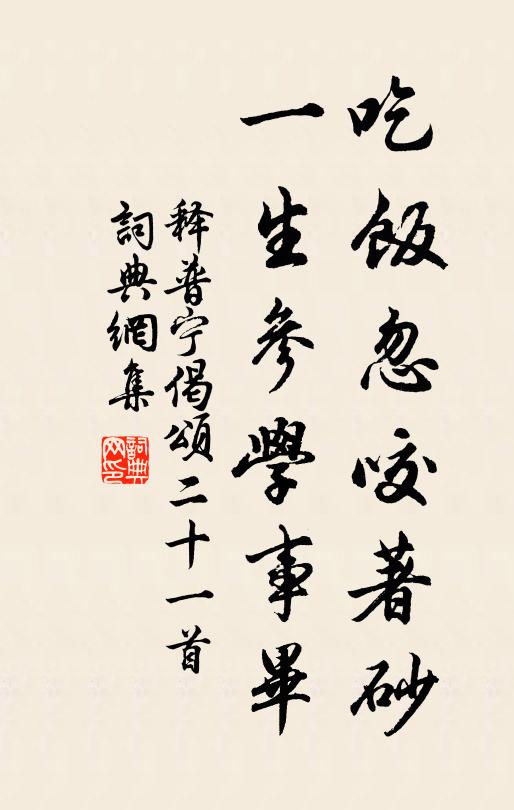 吃飯忽咬著砂
一生參學事畢
释普宁偈頌二十一首
詞典網集
詞典網印